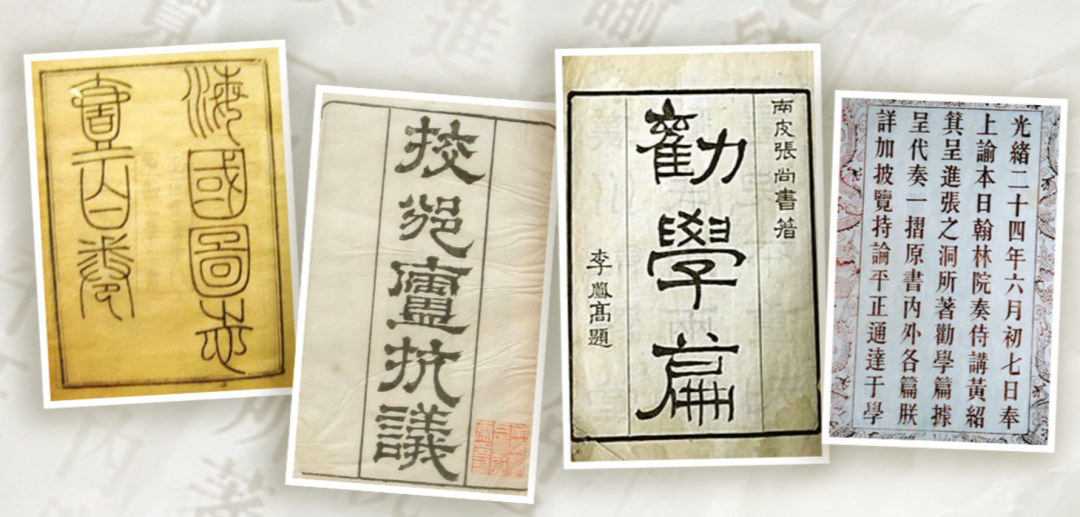 海國圖志
壹百卷
挍邠廬抗議
南皮張尚書著
勸學篇
李鳳高題
光緒二十四年六月初七日奉
上諭本日翰林院奏侍講黃紹
箕呈進張之洞所著勸學篇據
呈代奏一摺原書內外各篇朕
詳加披覽持論平正通達于學